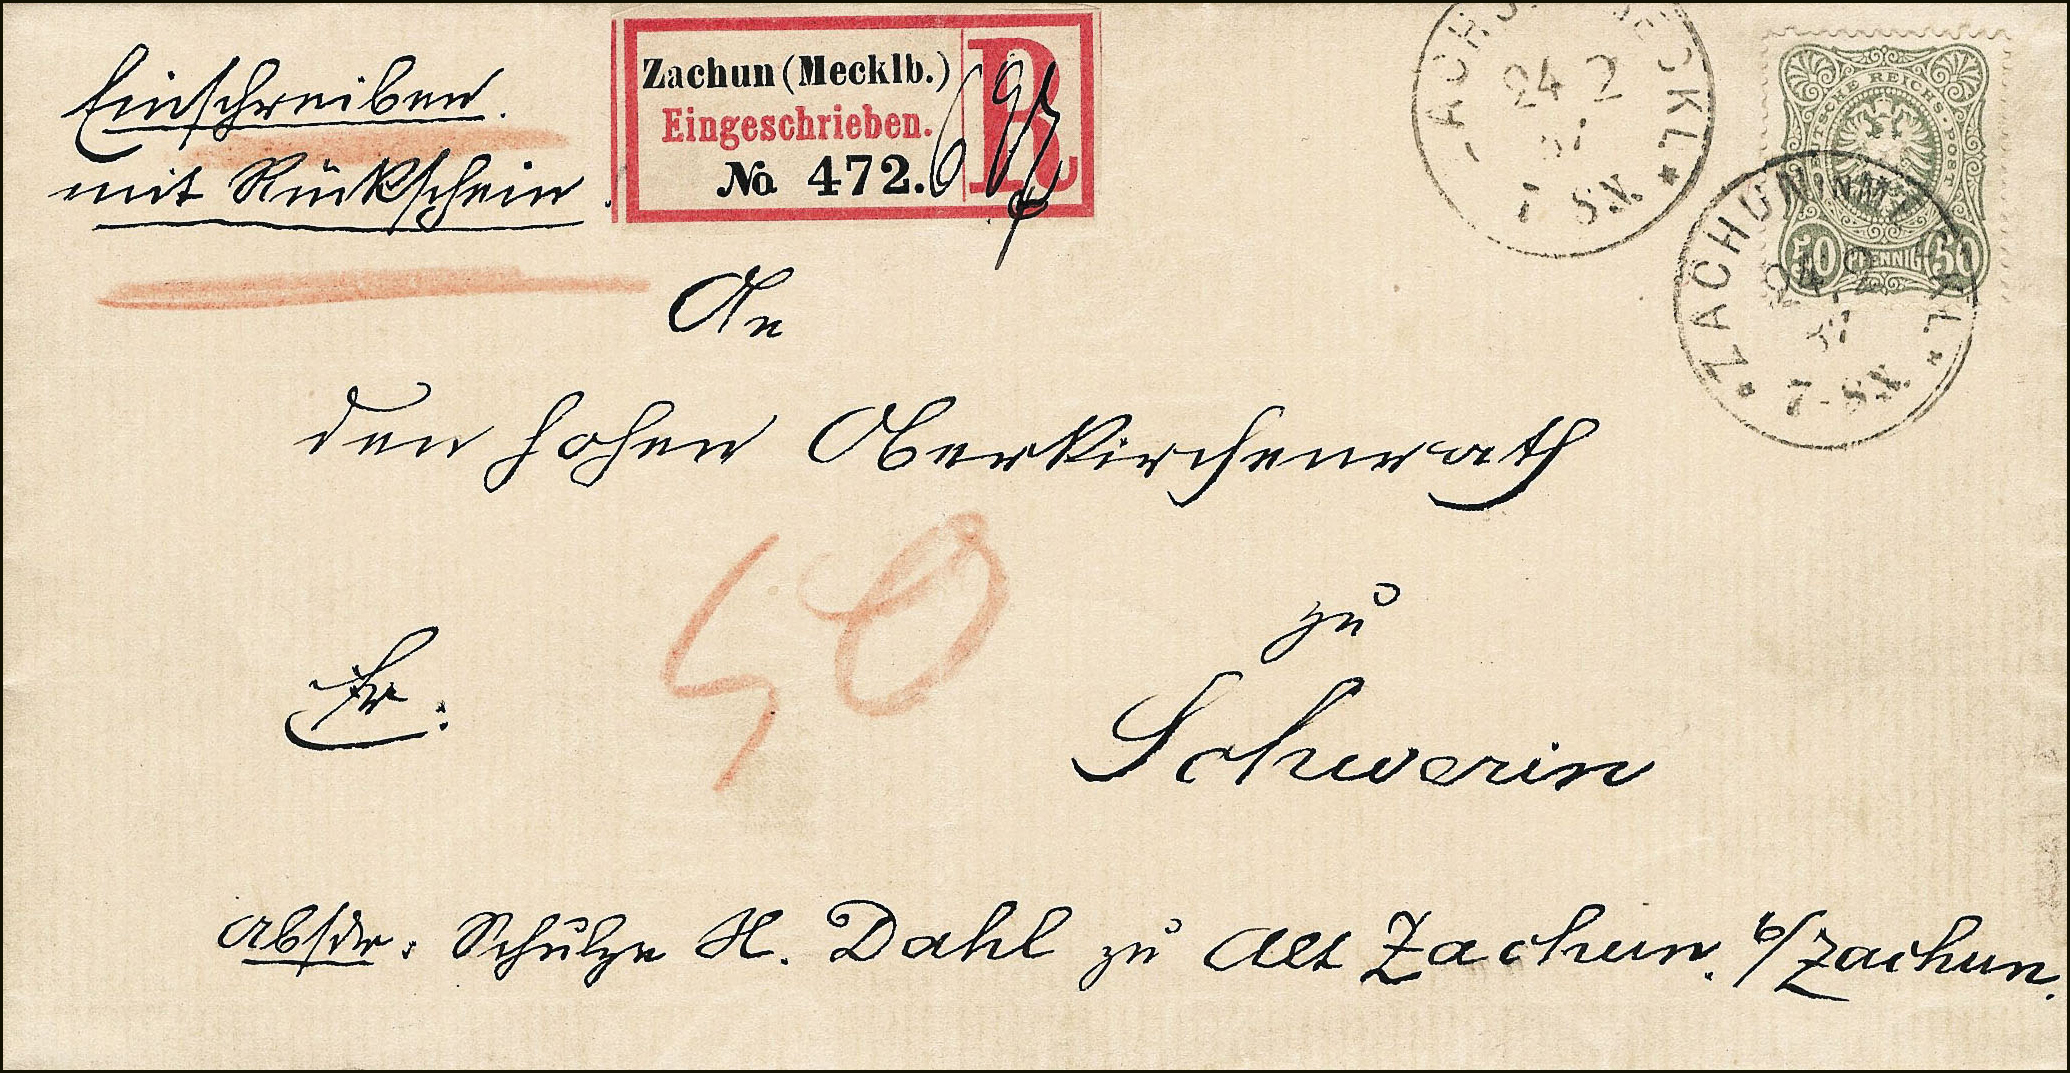 Einschreiben.
mit Rückschein.
Zachun (Mecklb.)
Eingeschrieben.
No 472.
R
24 2
7-8 N.
DEUTSCHE REICHS-POST
50 PFENNIG 50
* ZACHUN IN MECKL. *
24 2
87
7-8 N.
An
den hohen Oberkirchenrath
50
zu
Fr:
Schwerin
Absdr: Schulze H. Dahl zu Alt Zachun. b/Zachun.